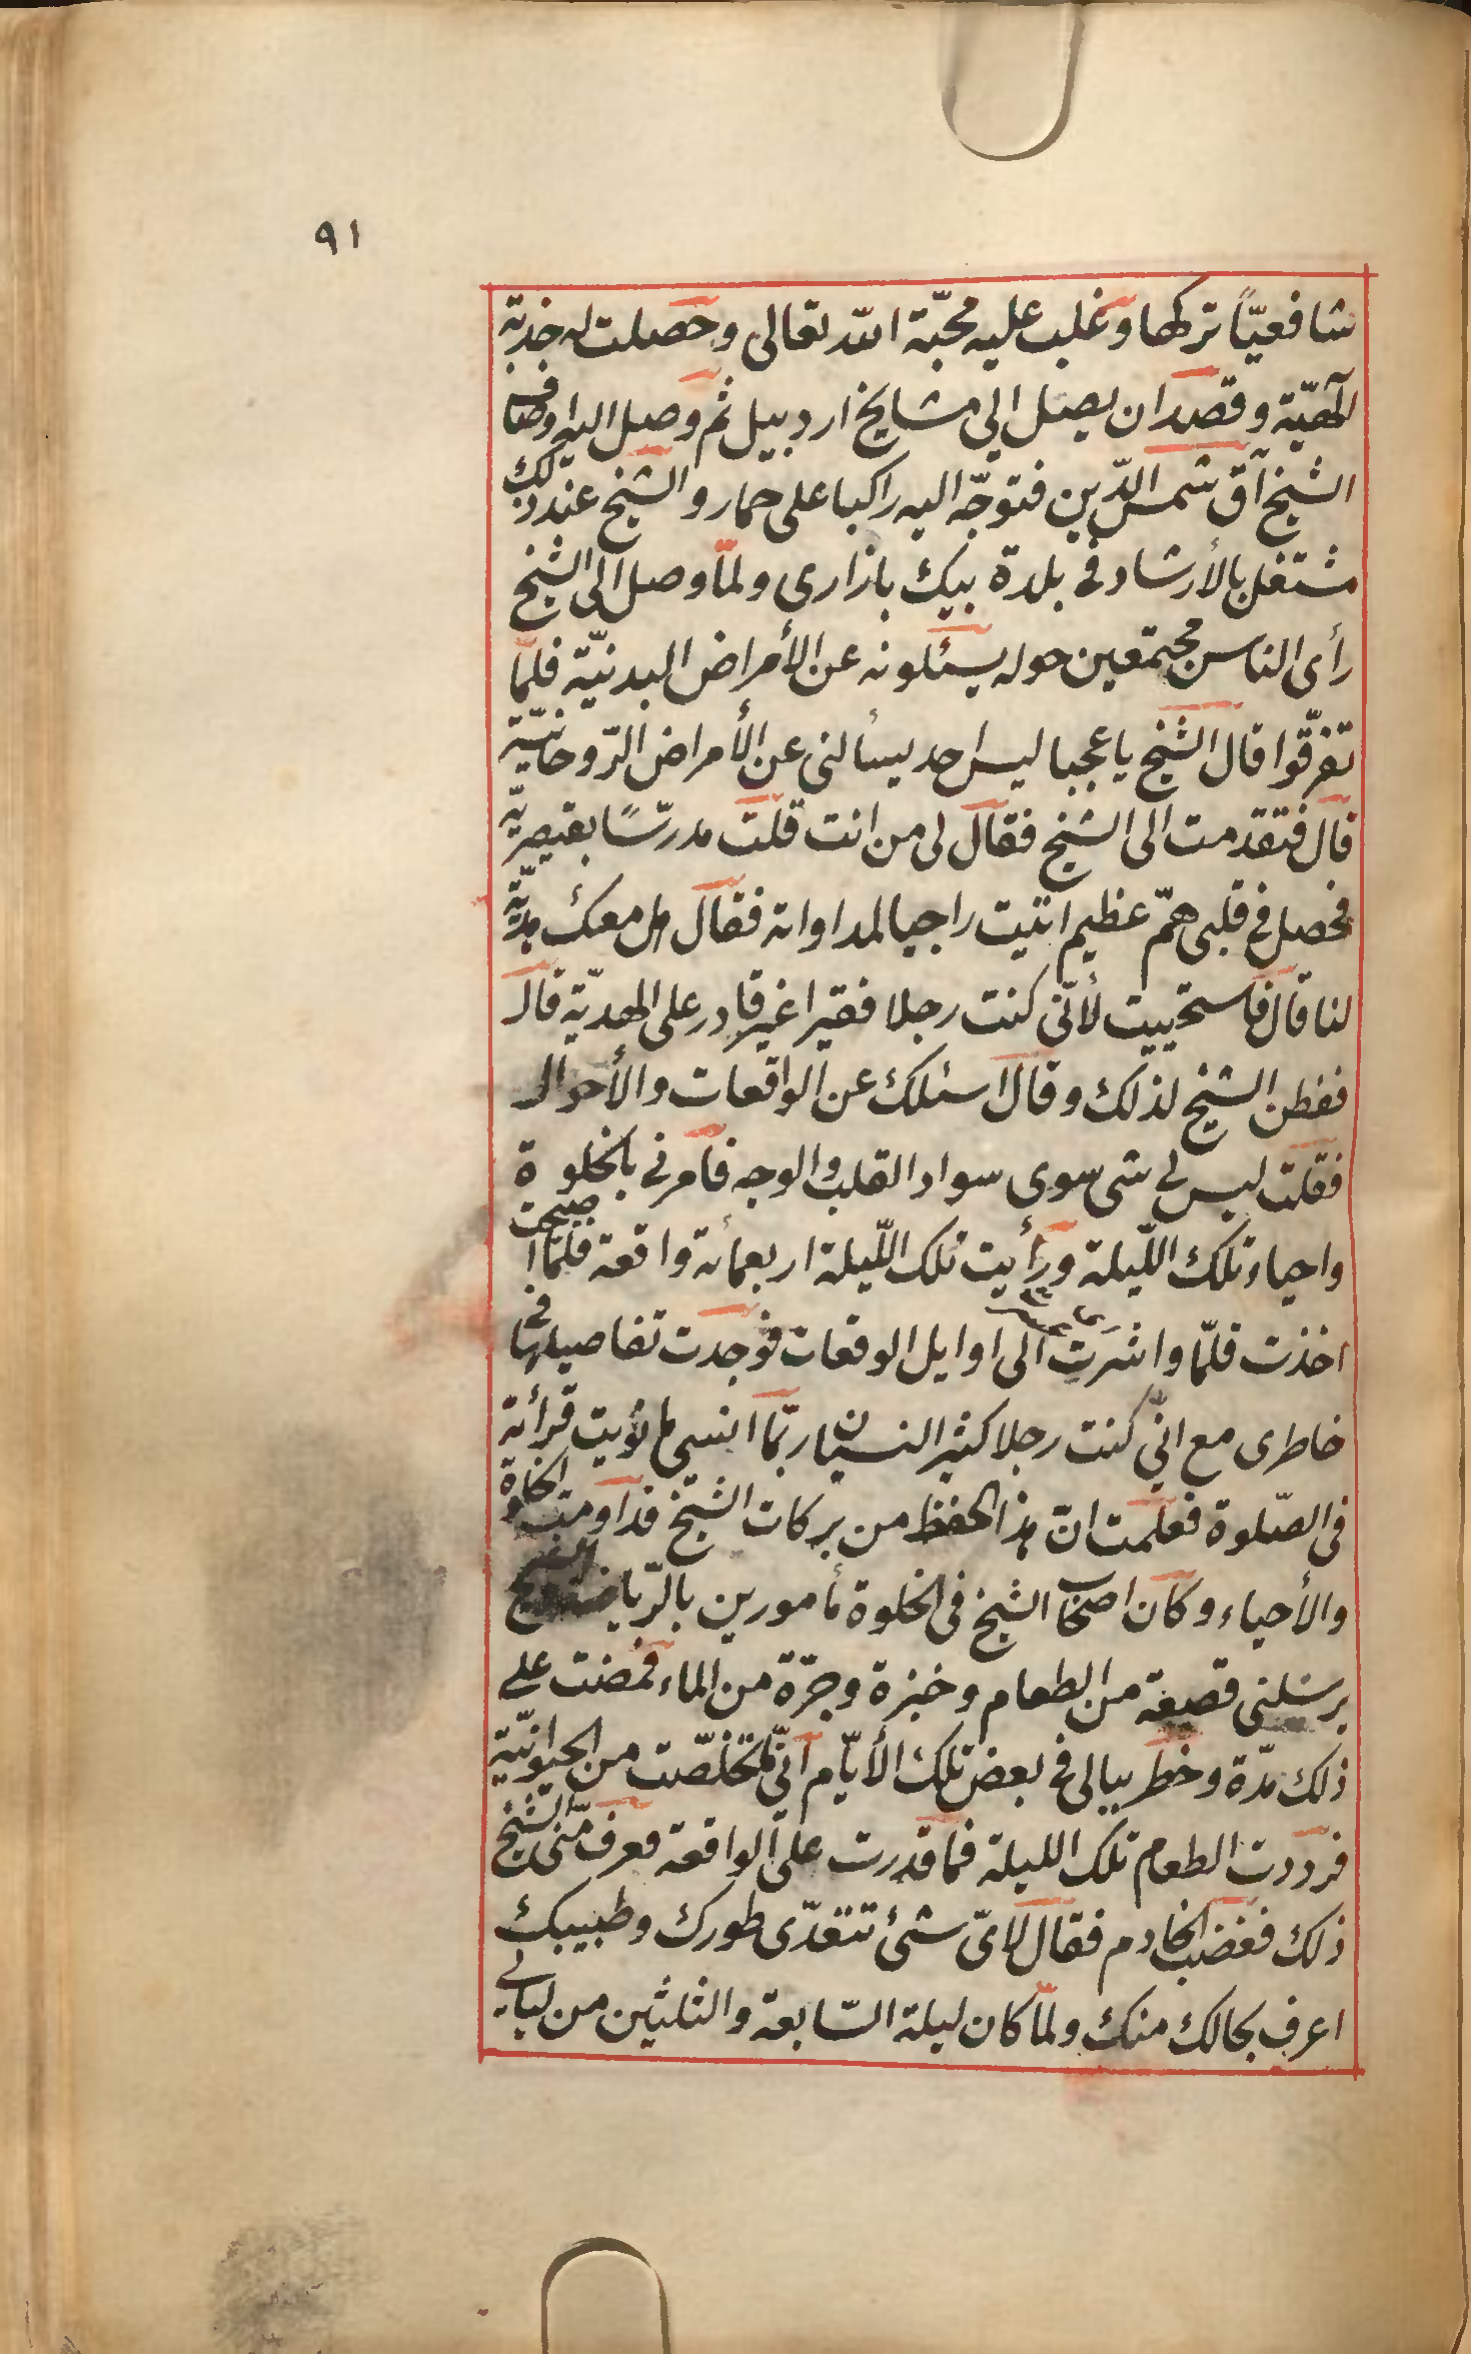 ٩١
شافعيّاً تركها وغلب عليه محبّة الله تعالى وحصلت له جذبة
آلهيّة وقصد ان يصل الى مشايخ اردبيل ثم وصل اليه اوصاف
الشيخ آق شمس الدّين فتوجّه اليه راكبا على حمار والشيخ عند ذلك
مشتغل بالأرشاد فى بلدة بيك بازارى ولمّا وصل الى الشيخ
رأى الناس مجتمعين حوله يسئلونه عن الأمراض البدنيّة فلمّا
تفرّقوا قال الشيخ يا عجبا ليس احد يسألنى عن الأمراض الرّوحانيّة
قال فتقدمت الى الشيخ فقال لى من انت قلت مدرّسًا بقيصريّة
فحصل فى قلبى همّ عظيم اتيت راجيا لمداواته فقال هل معك هديّة
لنا قال فاستحييت لأنّى كنت رجلا فقيرا غير قادر على الهديّة قال
ففطن الشيخ لذلك وقال اسئلك عن الواقعات والأحوال
فقلت ليس لى شى سوى سواد القلب والوجه فأمرنى بالخلوة
واحياء تلك اللّيلة ورأيت تلك اللّيلة اربعمأة واقعة فلمّا اصبحت
اخذت قلمّا واشرت الى اوايل الوقعات فوجدت تفاصيلها فى
خاطرى مع انّى كنت رجلا كثير النسيان ربّما انسى ما نويت قرأته
فى الصّلوة فعلمت انّ هذا الحفظ من بركات الشيخ فداومت الخلوة
والأحياء وكان اصحاب الشيخ فى الخلوة مأمورين بالرّياضة
يرسلنى قصيعة من الطعام وخبزة وجرّة من الماء فمضت على
ذلك مدّة وخطر ببالى فى بعض تلك الأيّام انّى تخلّصت من الحيوانيّة
فرددت الطعام تلك الليلة فما قدرت على الواقعة فعرف منّى الشيخ
ذلك فغضب الخادم فقال لاىّ شئ تتعدّى طورك وطبيبك
اعرف بحالك منك ولمّا كان ليلة السّابعة والثلثين من ليالى